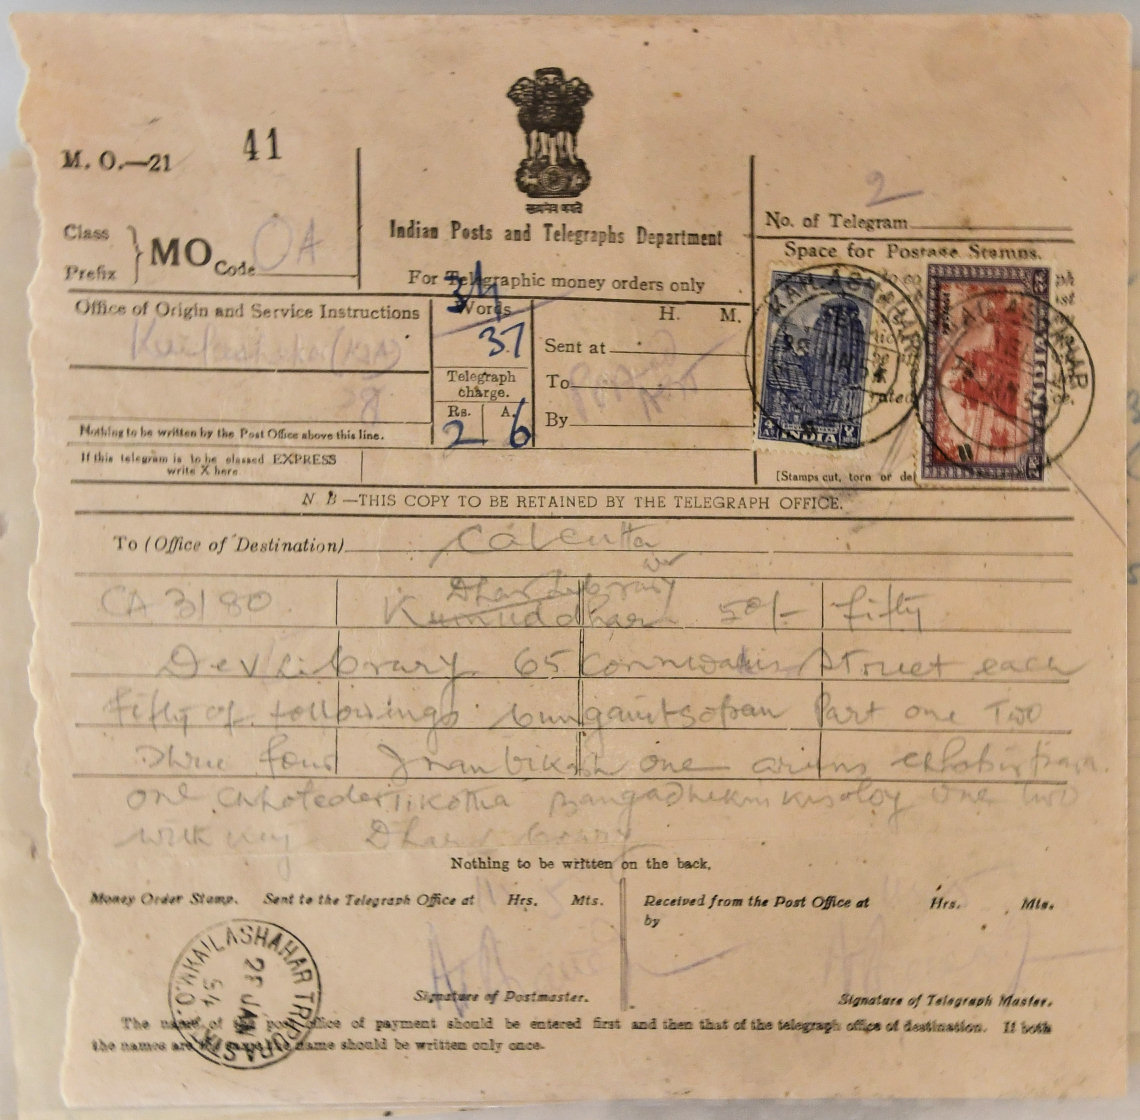 41
M. O.—21
सत्यमेव जयते
Class
Prefix
MO
Code OA
Indian Posts and Telegraphs Department
For Telegraphic money orders only
2
No. of Telegram
Space for Postage Stamps.
Office of Origin and Service Instructions
34
Words
37
Telegraph
charge.
Rs. A.
2 6
H. M.
Sent at
To
By
KAILASHAHAR
INDIA
[Stamps cut, torn or de
Nothing to be written by the Post Office above this line.
If this telegram is to be classed EXPRESS
write X here
N. B —THIS COPY TO BE RETAINED BY THE TELEGRAPH OFFICE.
To (Office of Destination) Calcutta
Dhar Library
CA 3180 Kumud dhar 50/- fifty
Dev Library 65 Cornwalis Street each
fifty of followings Part one Two
three four one
one one two
Dhar Library
Nothing to be written on the back.
Money Order Stamp. Sent to the Telegraph Office at Hrs. Mts.
Received from the Post Office at Hrs. Mts.
by
KAILASHAHAR TRIPURA
28 JAN
54
Signature of Postmaster.
Signature of Telegraph Master.
The name of the post office of payment should be entered first and then that of the telegraph office of destination. If both
the names are the same the name should be written only once.